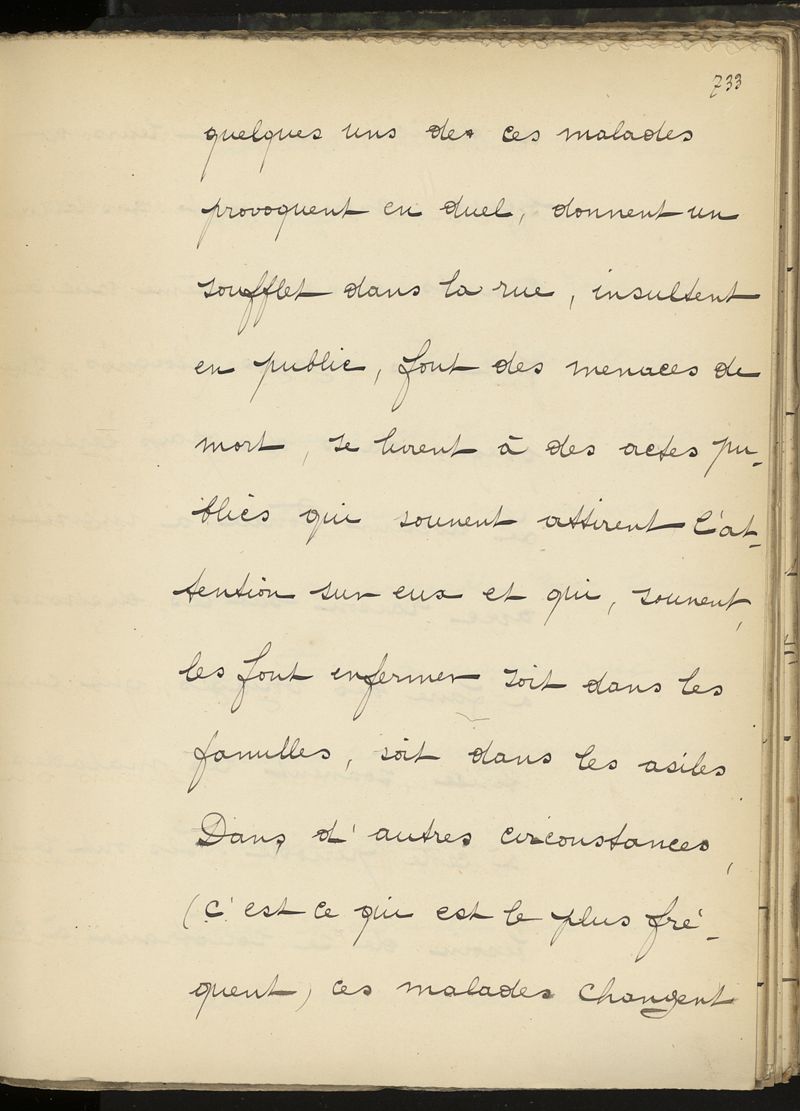 733
quelques uns de ces malades
provoquent en duel, donnent un
soufflet dans la rue, insultent
en public, font des menaces de
mort, se livrent à des actes pu-
blics qui souvent attirent l'at-
tention sur eux et qui, souvent,
les font enfermer soit dans les
familles, soit dans les asiles
Dans d'autres circonstances,
(c'est ce qui est le plus fré-
quent) ces malades changent